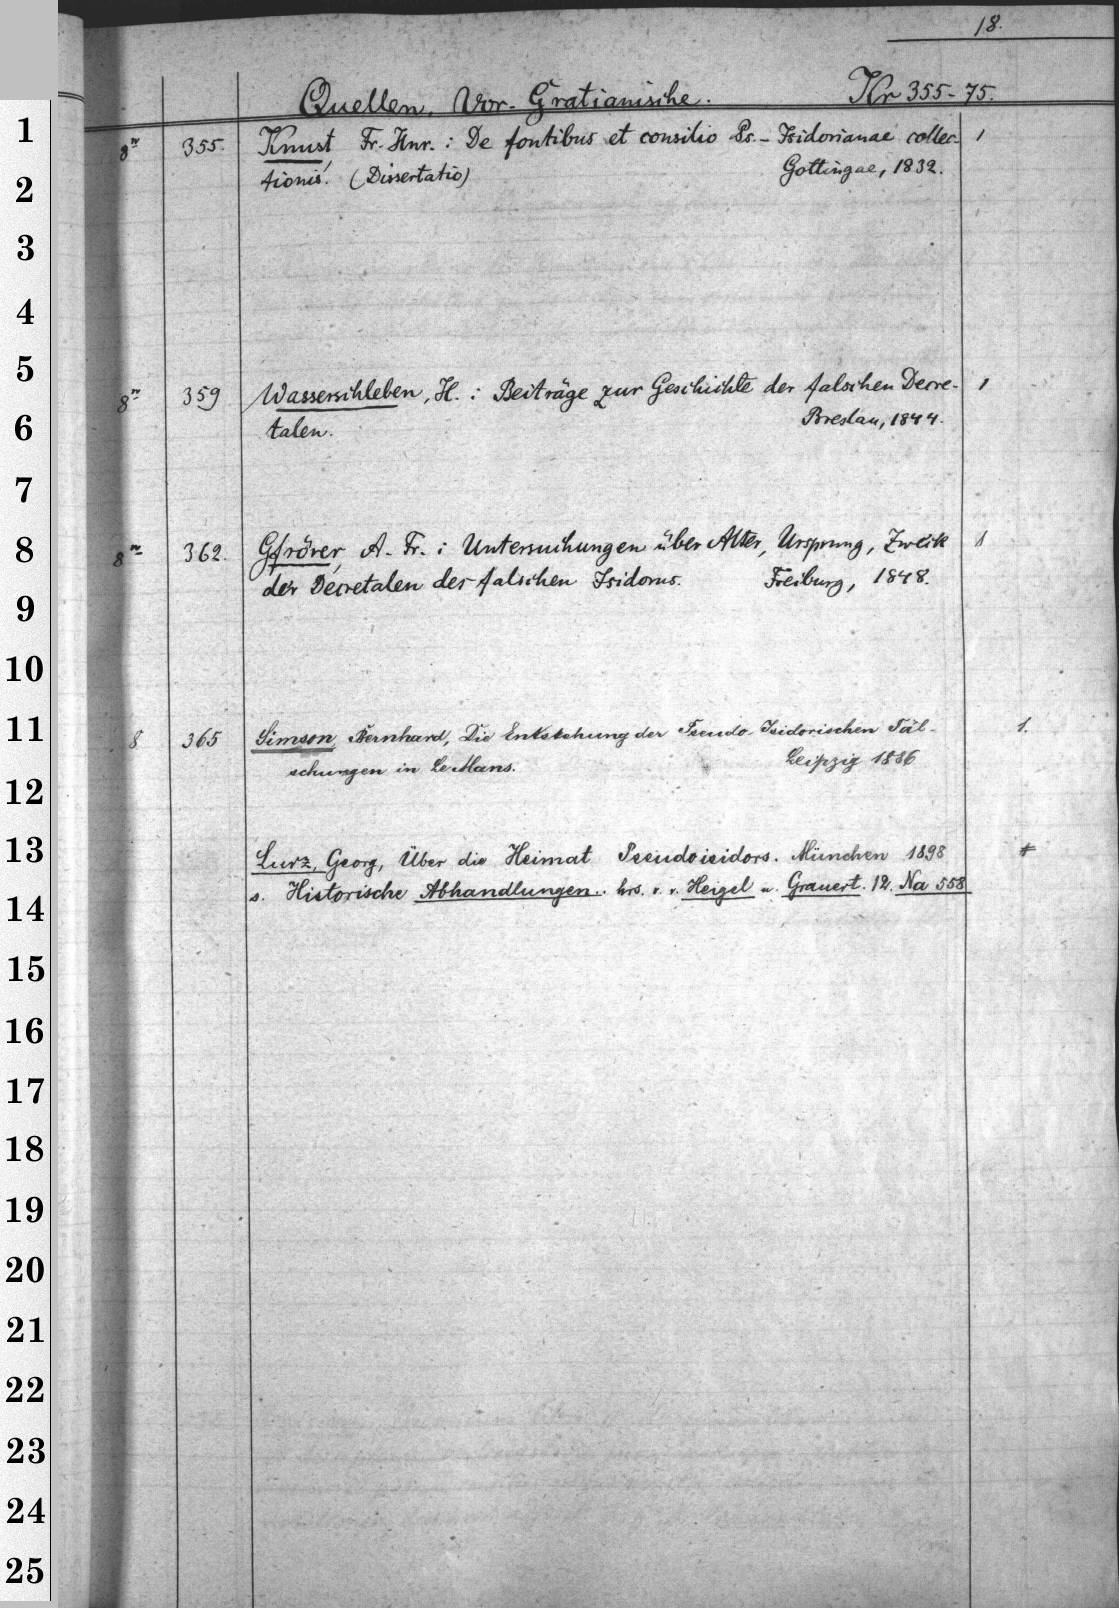 18.
Quellen, Vor-Gratianische. Kr 355-75.
1
8° 355. Knust, Fr. Hnr.: De fontibus et consilio Ps.-Isidorianae collec- 1
2
tionis. (Dissertatio) Gottingae, 1832.
3
4
5
8° 359 Wasserschleben, H.: Beiträge zur Geschichte der falschen Decre- 1
6
talen. Breslau, 1844.
7
8
8° 362. Gfrörer, A. Fr.: Untersuchungen über Alter, Ursprung, Zweck 1
9
der Decretalen des falschen Isidorus. Freiburg, 1848.
10
11
8 365 Simson, Bernhard, Die Entstehung der Pseudo-Isidorischen Fäl- 1.
schungen in Le Mans. Leipzig 1886
12
13
Lurz, Georg, Über die Heimat Pseudoisidors. München 1898 +
s. Historische Abhandlungen. hrs. v. v. Heigel u. Grauert. 12. Na 558
14
15
16
17
18
19
20
21
22
23
24
25